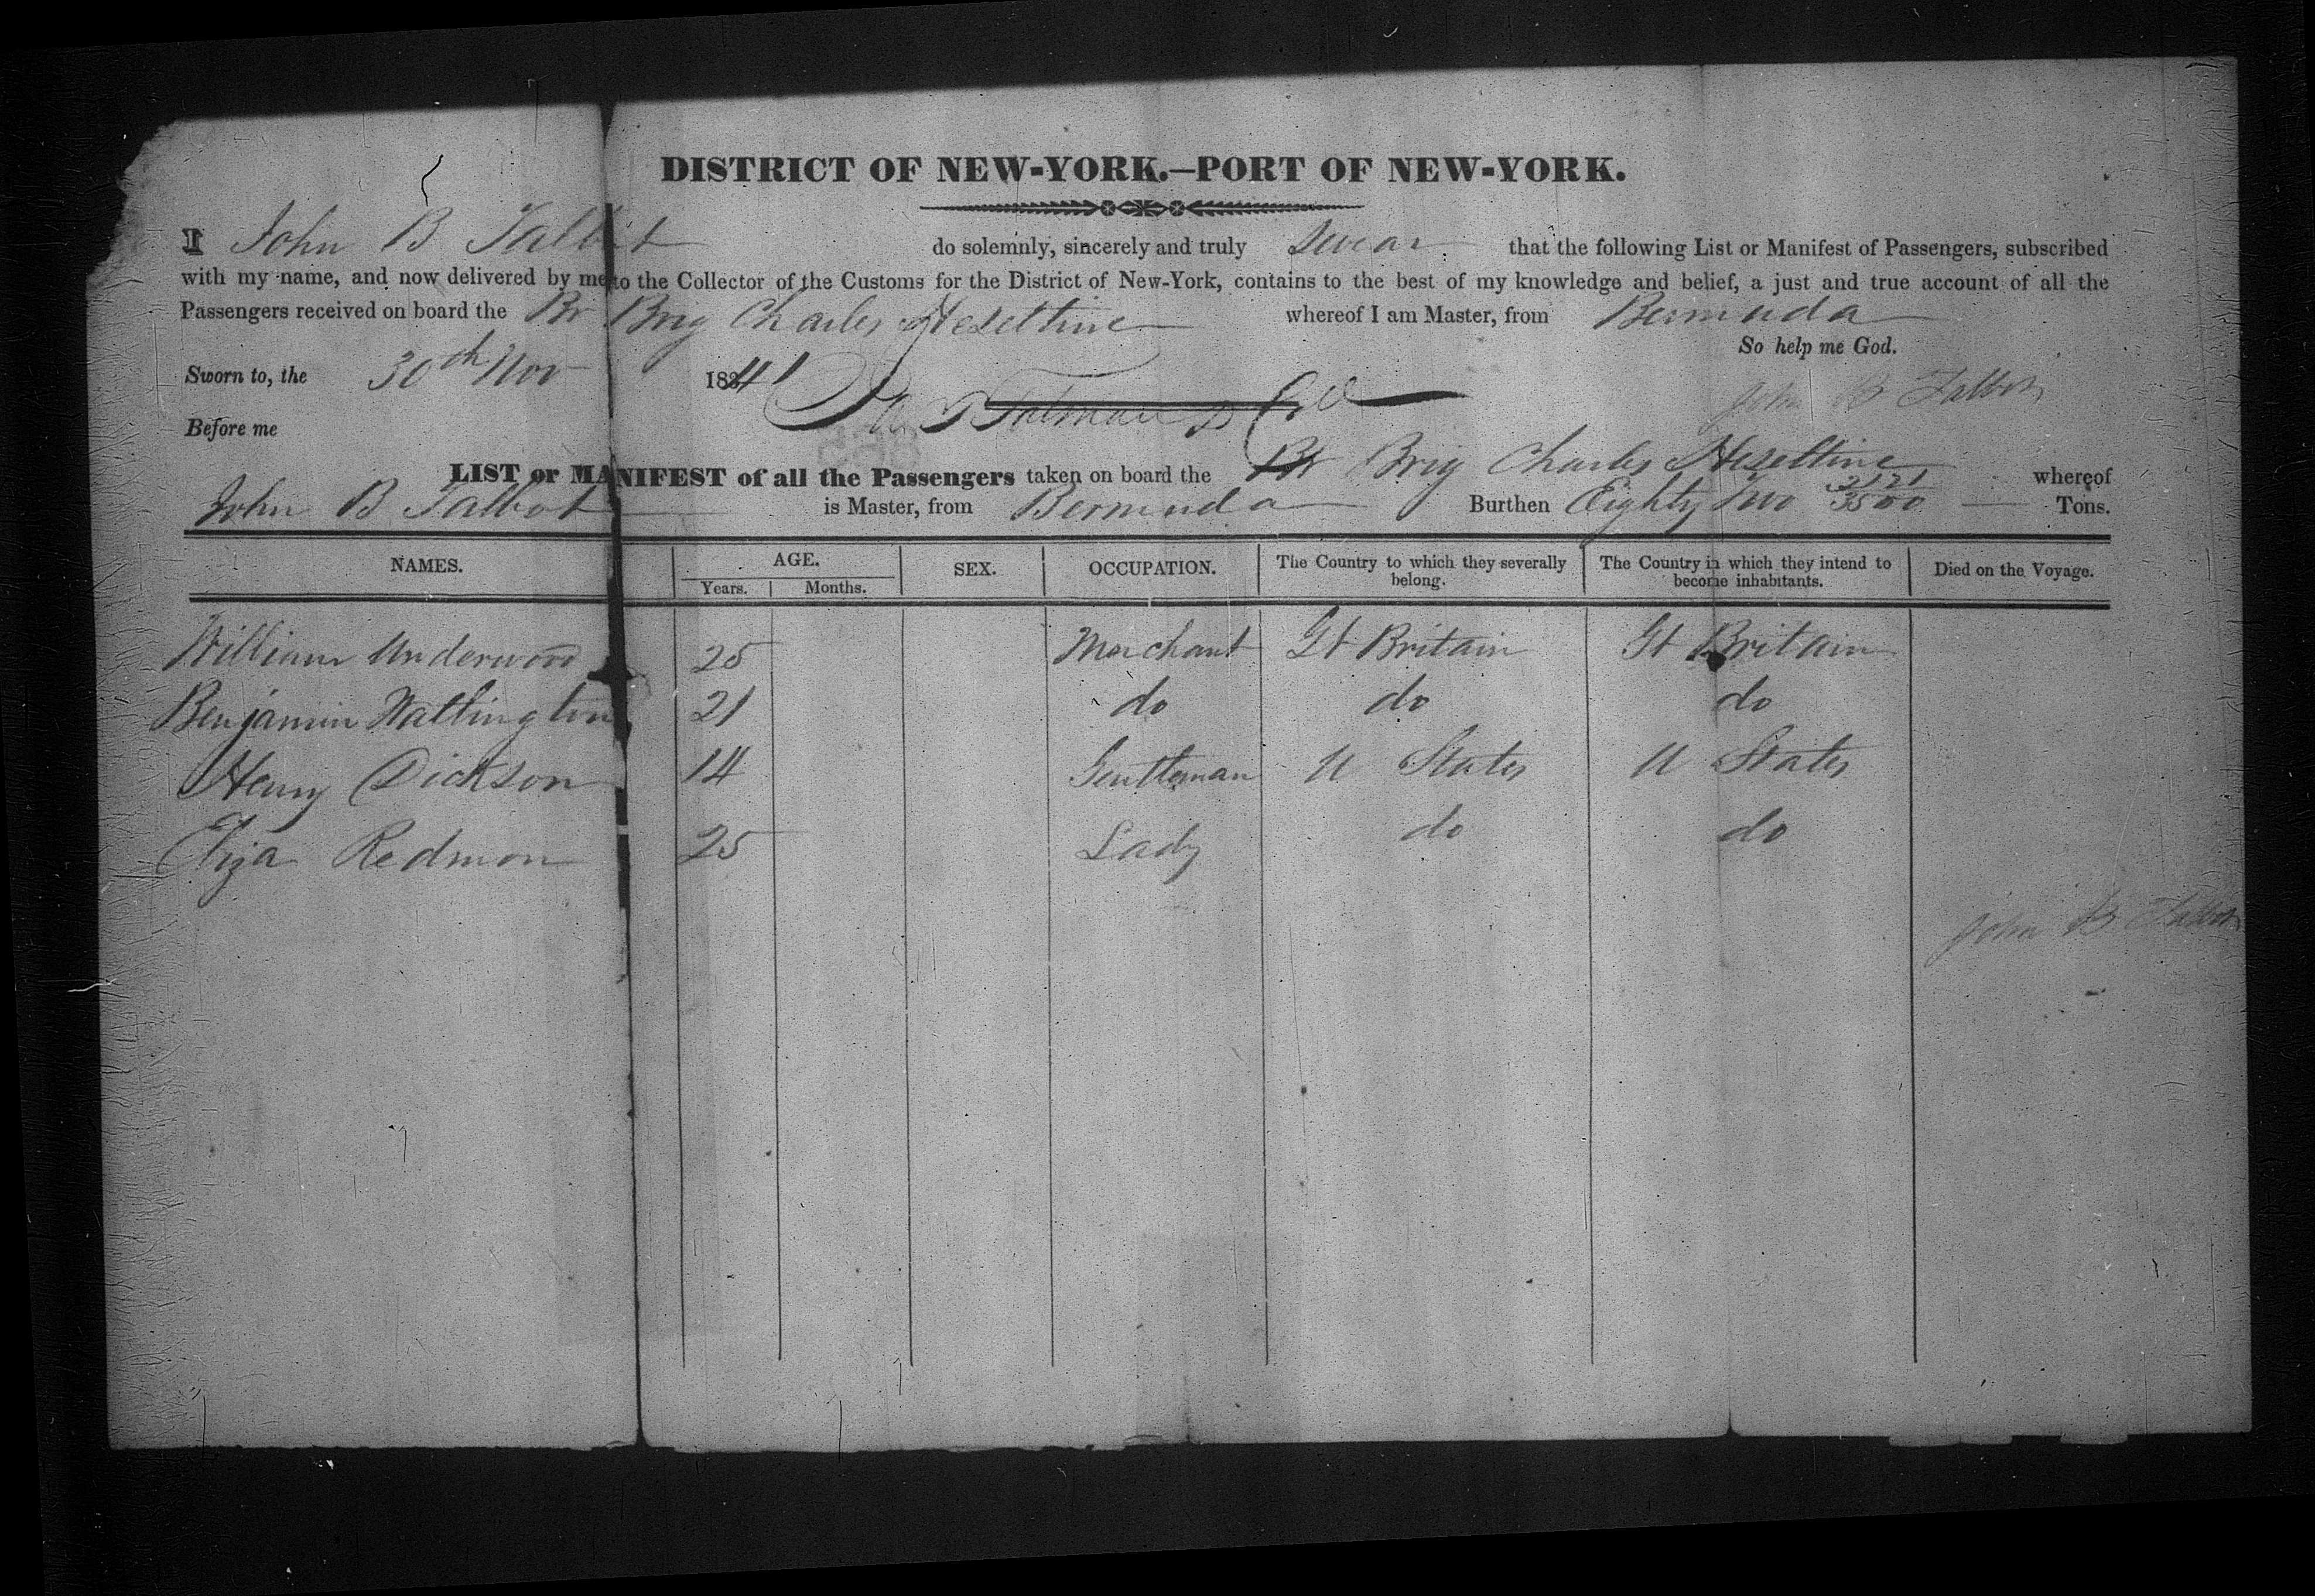 DISTRICT OF NEW-YORK.—PORT OF NEW-YORK.
I John B Talbot do solemnly, sincerely and truly swear that the following List or Manifest of Passengers, subscribed
with my name, and now delivered by me to the Collector of the Customs for the District of New-York, contains to the best of my knowledge and belief, a just and true account of all the
Passengers received on board the Br Brig Charles Heseltine whereof I am Master, from Bermuda
So help me God.
Sworn to, the 30th Nov 1841
John B Talbot
Before me
LIST or MANIFEST of all the Passengers taken on board the Br Brig Charles Heseltine whereof
John B Talbot is Master, from Bermuda Burthen Eighty Two 2121/3500 Tons.
NAMES. AGE. Years. Months. SEX. OCCUPATION. The Country to which they severally belong. The Country in which they intend to become inhabitants. Died on the Voyage.
William Underwood 25 Merchant Gt Britain Gt Britain
Benjamin Watlington 21 do do do
Henry Dickson 14 Gentleman U States U States
Eliza Redmon 25 Lady do do
John B Talbot